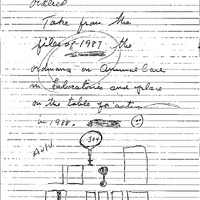 ordered
Take from the
files of 1987 the
ordinance on Animal Care
in Laboratories and place
on the table for action
in 1988.